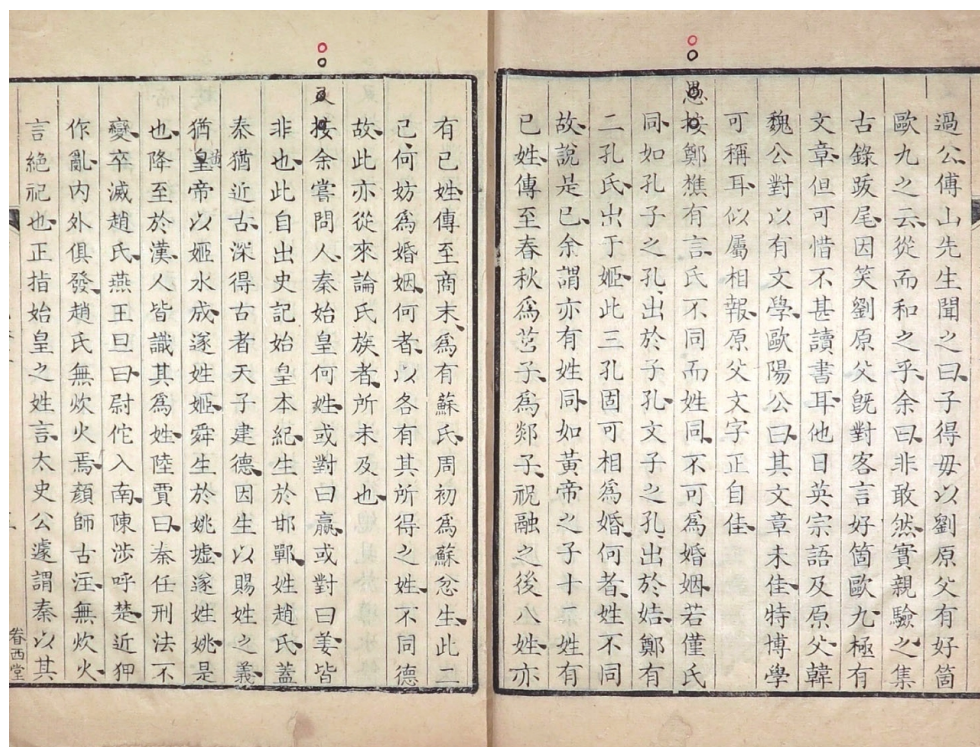 過公傅山先生聞之曰子得毋以劉原父有好箇
歐九之云從而和之乎余曰非敢然實親驗之集
古錄跋尾因笑劉原父旣對客言好箇歐九極有
文章但可惜不甚讀書耳他日英宗語及原父韓
魏公對以有文學歐陽公曰其文章未佳特博學
可稱耳似屬相報原父文字正自佳
愚按鄭樵有言氏不同而姓同不可爲婚姻若僅氏
同如孔子之孔出於子孔文子之孔出於姞鄭有
二孔氏出于姬此三孔固可相爲婚何者姓不同
故說是已余謂亦有姓同如黃帝之子十二姓有
已姓傳至春秋爲莒子爲郯子祝融之後八姓亦
有已姓傳至商末爲有蘇氏周初爲蘇忿生此二
已何妨爲婚姻何者以各有其所得之姓不同德
故此亦從來論氏族者所未及也
又按余嘗問人秦始皇何姓或對曰嬴或對曰姜皆
非也此自出史記始皇本紀生於邯鄲姓趙氏蓋
秦猶近古深得古者天子建德因生以賜姓之義
猶皇帝以姬水成遂姓姬舜生於姚墟遂姓姚是
黃
也降至於漢人皆識其爲姓陸賈曰秦任刑法不
變卒滅趙氏燕王旦曰尉佗入南陳涉呼楚近狎
作亂內外俱發趙氏無炊火焉顏師古注無炊火
言絕祀也正指始皇之姓言太史公遽謂秦以其
眷西堂